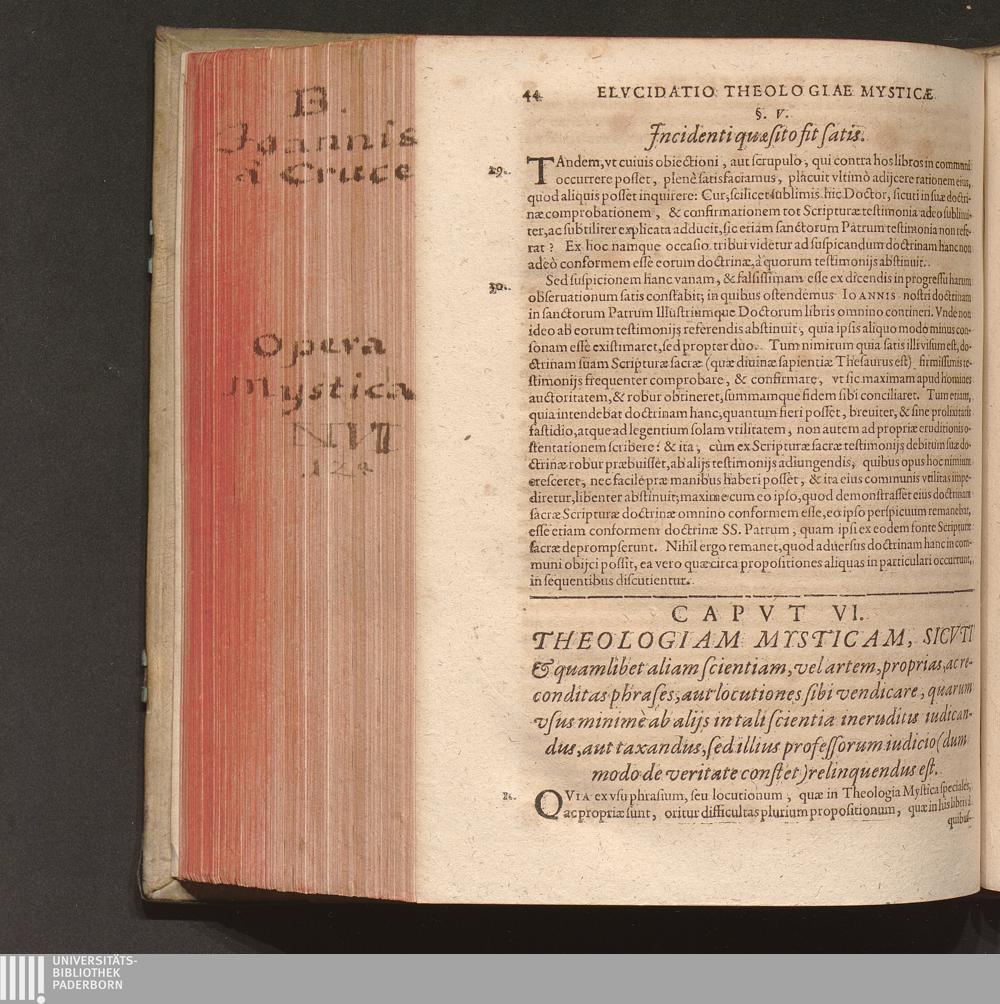 B.
Joannis
à Cruce
Opera
Mystica
44 ELVCIDATIO THEOLOGIAE MYSTICÆ
§. V.
Incidenti quæsito fit satis.
29. TAndem, vt cuiuis obiectioni, aut scrupulo, qui contra hos libros in communi
occurrere posset, plenè satisfaciamus, placuit vltimò adijcere rationem eius,
quod aliquis posset inquirere: Cur, scilicet sublimis hic Doctor, sicuti in suæ doctri-
næ comprobationem, & confirmationem tot Scripturæ testimonia adeo sublimi-
ter, ac subtiliter explicata adducit, sic etiam sanctorum Patrum testimonia non refe-
rat? Ex hoc namque occasio tribui videtur ad suspicandum doctrinam hanc non
adeò conformem esse eorum doctrinæ, à quorum testimonijs abstinuit.
30. Sed suspicionem hanc vanam, & falsissimam esse ex dicendis in progressu harum
obseruationum satis constabit; in quibus ostendemus IOANNIS nostri doctrinam
in sanctorum Patrum Illustriumque Doctorum libris omnino contineri. Vnde non
ideo ab eorum testimonijs referendis abstinuit, quia ipsis aliquo modo minus con-
sonam esse existimaret, sed propter duo. Tum nimirum quia satis illi visum est, do-
ctrinam suam Scripturæ sacræ (quæ diuinæ sapientiæ Thesaurus est) firmissimis te-
stimonijs frequenter comprobare, & confirmare, vt sic maximam apud homines
auctoritatem, & robur obtineret, summamque fidem sibi conciliaret. Tum etiam,
quia intendebat doctrinam hanc, quantum fieri posset, breuiter, & sine prolixitatis
fastidio, atque ad legentium solam vtilitatem, non autem ad propriæ eruditionis o-
stentationem scribere: & ita, cùm ex Scripturæ sacræ testimonijs debitum suæ do-
ctrinæ robur præbuisset, ab alijs testimonijs adiungendis, quibus opus hoc nimium
cresceret, nec facilè præ manibus haberi posset, & ita eius communis vtilitas impe-
diretur, libenter abstinuit; maxime cum eo ipso, quod demonstrasset eius doctrinam
sacræ Scripturæ doctrinæ omnino conformem esse, eo ipso perspicuum remanebat,
esse etiam conformem doctrinæ SS. Patrum, quam ipsi ex eodem fonte Scripturæ
sacræ deprompserunt. Nihil ergo remanet, quod aduersus doctrinam hanc in com-
muni obijci possit, ea vero quæ circa propositiones aliquas in particulari occurrunt,
in sequentibus discutientur.
CAPVT VI.
THEOLOGIAM MYSTICAM, SICVTI
& quamlibet aliam scientiam, vel artem, proprias, ac re-
conditas phrases, aut locutiones sibi vendicare, quarum
vsus minimè ab alijs in tali scientia ineruditis iudican-
dus, aut taxandus, sed illius professorum iudicio (dum
modo de veritate constet) relinquendus est.
QVIA ex vsu phrasium, seu locutionum, quæ in Theologia Mystica speciales,
ac propriæ sunt, oritur difficultas plurium propositionum, quæ in his libris à
quibus-
UNIVERSITÄTS-
BIBLIOTHEK
PADERBORN